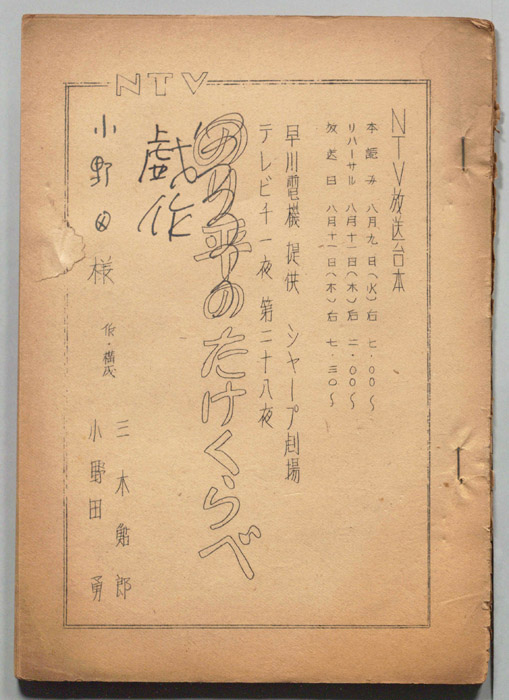 NTV
NTV放送台本
本読み 八月九日(火)后七・〇〇〜
リハーサル 八月十一日(木)后二・〇〇〜
放送日 八月十一日(木)后七・三〇〜
早川電機提供 シャープ劇場
テレビ千一夜 第二十八夜
のり平のたけくらべ
戯作
作・構成
三木鮎郎
小野田勇
小野田様